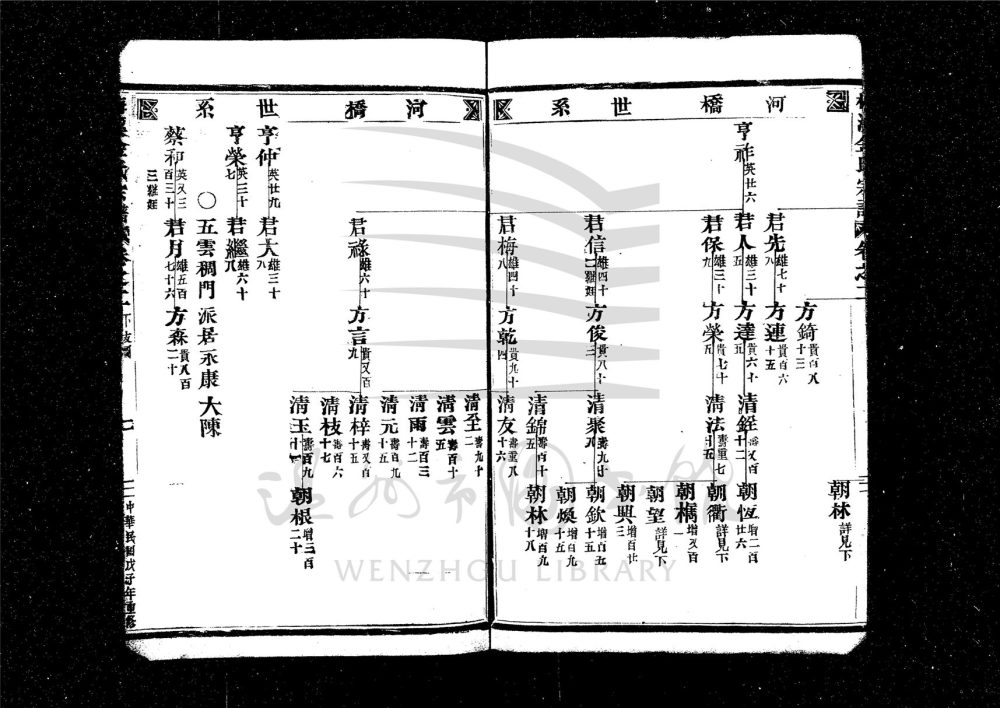 河橋世系
亨祚 英廿六
君先 雄七十八
君人 雄三十五
君保 雄三十九
君信 雄四十二 雅廷
君梅 雄四十八
方錡 貴百八十三
方連 貴百六十五
方達 貴六十五
方榮 貴七十五
方俊 貴八十三
方乾 貴九十四
清銓 壽又百十二
清法 壽重七十五
清衆 壽九十八
清錦 壽百十五
清友 壽重八十六
朝林 詳見下
朝恆 增二百廿六
朝衢 詳見下
朝檇 增又百一
朝望 詳見下
朝興 增百廿三
朝欽 增百五十五
朝煥 增百九十五
朝林 增百九十八
河橋世系
君祿 雄六十
方言 貴又百九
清至 壽九十二
清雲 壽百十五
清雨 壽百三十二
清元 壽百九十五
清梓 壽又百十五
清枝 壽百六十七
清玉 壽百九
朝根 增三百二十
亨仲 英廿九
君大 雄三十九
亨榮 英三十七
君繼 雄六十八
○五雲稠門派居永康大陳
蔡和 英又三百三十三
君月 雄五百七十六
方森 貴八百二十
中華民國戊子年重修
WENZHOU LIBRARY